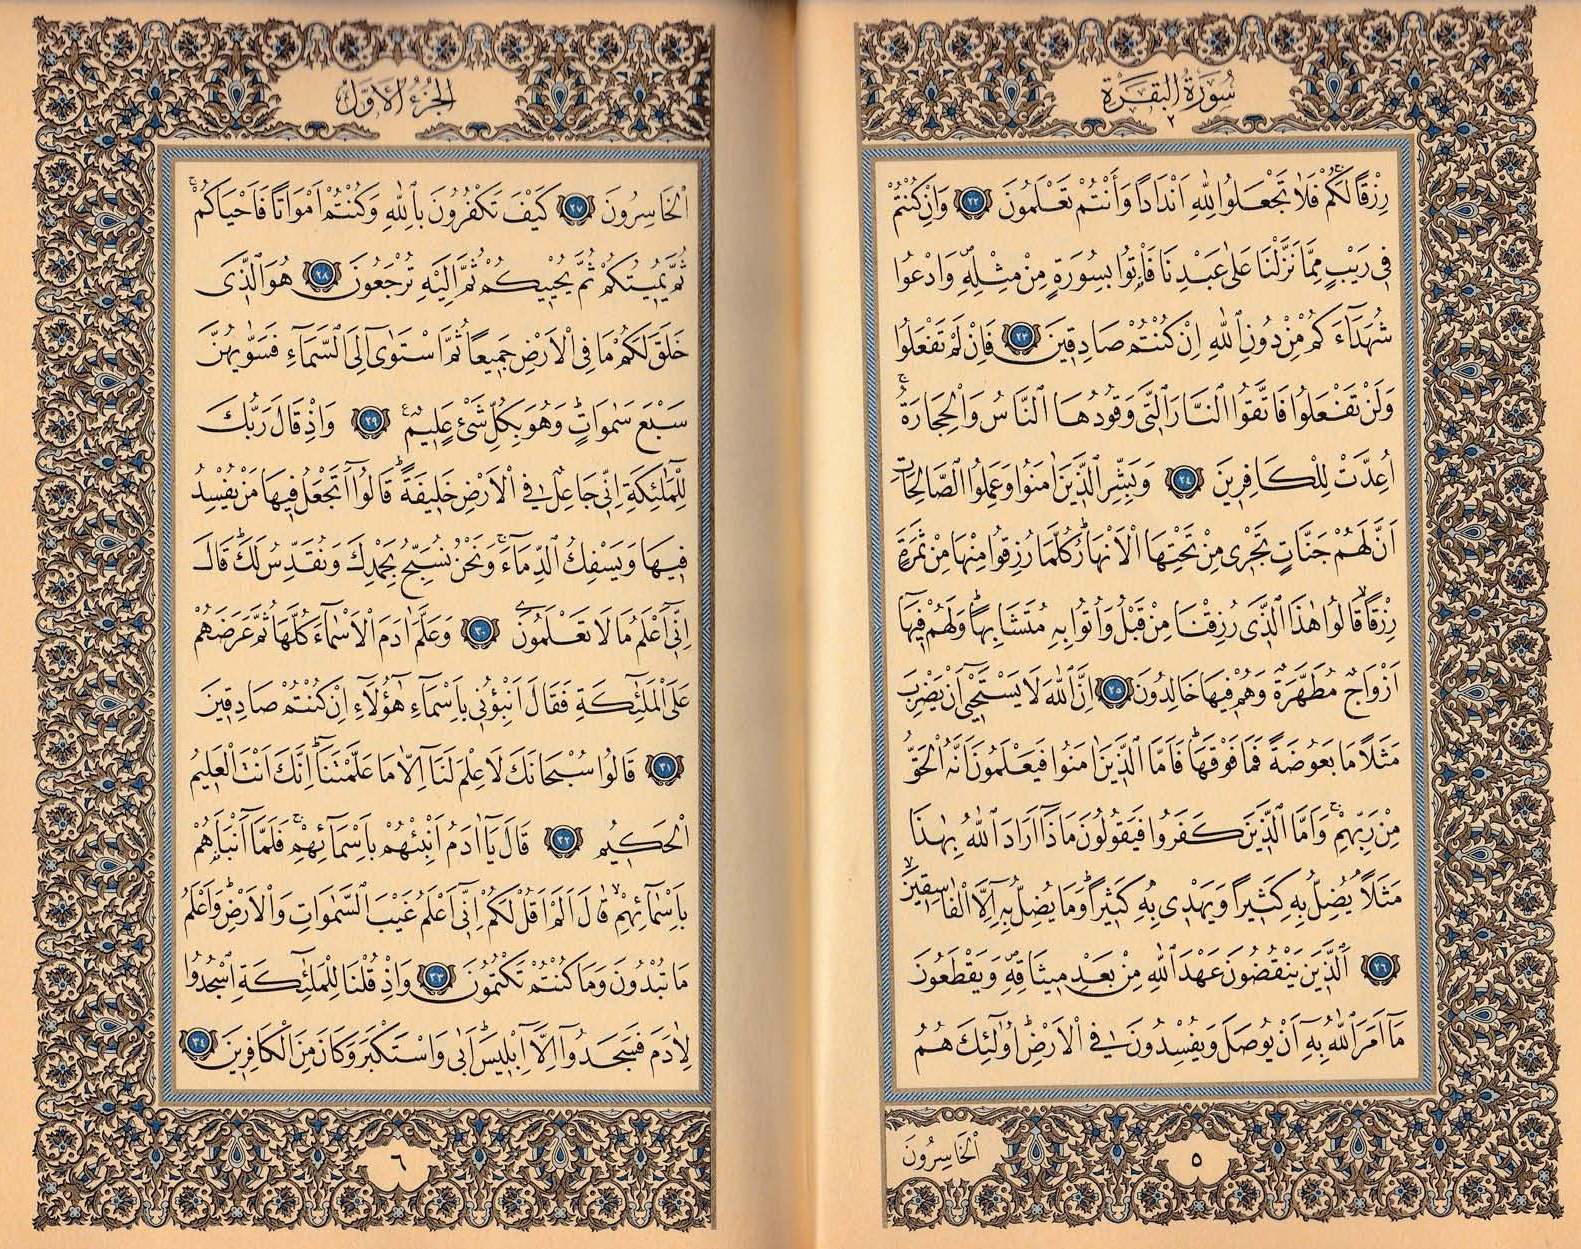 سُورَةُ الْبَقَرَةِ
٢
رِزْقًا لَكُمْۚ فَلَا تَجْعَلُوا لِلّٰهِ اَنْدَادًا وَاَنْتُمْ تَعْلَمُونَ ﴿٢٢﴾ وَاِنْ كُنْتُمْ
فٖى رَيْبٍ مِمَّا نَزَّلْنَا عَلٰى عَبْدِنَا فَأْتُوا بِسُورَةٍ مِنْ مِثْلِهٖ وَادْعُوا
شُهَدَٓاءَكُمْ مِنْ دُونِ اللّٰهِ اِنْ كُنْتُمْ صَادِقٖينَ ﴿٢٣﴾ فَاِنْ لَمْ تَفْعَلُوا
وَلَنْ تَفْعَلُوا فَاتَّقُوا النَّارَ الَّتٖى وَقُودُهَا النَّاسُ وَالْحِجَارَةُۚ
اُعِدَّتْ لِلْكَافِرٖينَ ﴿٢٤﴾ وَبَشِّرِ الَّذٖينَ اٰمَنُوا وَعَمِلُوا الصَّالِحَاتِ
اَنَّ لَهُمْ جَنَّاتٍ تَجْرٖى مِنْ تَحْتِهَا الْاَنْهَارُؕ كُلَّمَا رُزِقُوا مِنْهَا مِنْ ثَمَرَةٍ
رِزْقًاۙ قَالُوا هٰذَا الَّذٖى رُزِقْنَا مِنْ قَبْلُ وَاُتُوا بِهٖ مُتَشَابِهًاؕ وَلَهُمْ فٖيهَٓا
اَزْوَاجٌ مُطَهَّرَةٌ وَهُمْ فٖيهَا خَالِدُونَ ﴿٢٥﴾ اِنَّ اللّٰهَ لَا يَسْتَحْيٖٓ اَنْ يَضْرِبَ
مَثَلًا مَا بَعُوضَةً فَمَا فَوْقَهَاؕ فَاَمَّا الَّذٖينَ اٰمَنُوا فَيَعْلَمُونَ اَنَّهُ الْحَقُّ
مِنْ رَبِّهِمْۚ وَاَمَّا الَّذٖينَ كَفَرُوا فَيَقُولُونَ مَاذَٓا اَرَادَ اللّٰهُ بِهٰذَا
مَثَلًاۘ يُضِلُّ بِهٖ كَثٖيرًا وَيَهْدٖى بِهٖ كَثٖيرًاؕ وَمَا يُضِلُّ بِهٖٓ اِلَّا الْفَاسِقٖينَۙ
﴿٢٦﴾ اَلَّذٖينَ يَنْقُضُونَ عَهْدَ اللّٰهِ مِنْ بَعْدِ مٖيثَاقِهٖ وَيَقْطَعُونَ
مَٓا اَمَرَ اللّٰهُ بِهٖٓ اَنْ يُوصَلَ وَيُفْسِدُونَ فِى الْاَرْضِؕ اُولٰٓئِكَ هُمُ
الْخَاسِرُونَ
٥
الجزءُ الأوّلُ
الْخَاسِرُونَ ﴿٢٧﴾ كَيْفَ تَكْفُرُونَ بِاللّٰهِ وَكُنْتُمْ اَمْوَاتًا فَاَحْيَاكُمْۚ
ثُمَّ يُمٖيتُكُمْ ثُمَّ يُحْيٖيكُمْ ثُمَّ اِلَيْهِ تُرْجَعُونَ ﴿٢٨﴾ هُوَ الَّذٖى
خَلَقَ لَكُمْ مَا فِى الْاَرْضِ جَمٖيعًا ثُمَّ اسْتَوٰٓى اِلَى السَّمَٓاءِ فَسَوّٰيهُنَّ
سَبْعَ سَمٰوَاتٍؕ وَهُوَ بِكُلِّ شَىْءٍ عَلٖيمٌ ﴿٢٩﴾ وَاِذْ قَالَ رَبُّكَ
لِلْمَلٰٓئِكَةِ اِنّٖى جَاعِلٌ فِى الْاَرْضِ خَلٖيفَةًؕ قَالُٓوا اَتَجْعَلُ فٖيهَا مَنْ يُفْسِدُ
فٖيهَا وَيَسْفِكُ الدِّمَٓاءَۚ وَنَحْنُ نُسَبِّحُ بِحَمْدِكَ وَنُقَدِّسُ لَكَؕ قَالَ
اِنّٖٓى اَعْلَمُ مَا لَا تَعْلَمُونَ ﴿٣٠﴾ وَعَلَّمَ اٰدَمَ الْاَسْمَٓاءَ كُلَّهَا ثُمَّ عَرَضَهُمْ
عَلَى الْمَلٰٓئِكَةِ فَقَالَ اَنْبِؤُنٖى بِاَسْمَٓاءِ هٰٓؤُلَٓاءِ اِنْ كُنْتُمْ صَادِقٖينَ
﴿٣١﴾ قَالُوا سُبْحَانَكَ لَا عِلْمَ لَنَٓا اِلَّا مَا عَلَّمْتَنَاؕ اِنَّكَ اَنْتَ الْعَلٖيمُ
الْحَكٖيمُ ﴿٣٢﴾ قَالَ يَٓا اٰدَمُ اَنْبِئْهُمْ بِاَسْمَٓائِهِمْۚ فَلَمَّٓا اَنْبَاَهُمْ
بِاَسْمَٓائِهِمْۙ قَالَ اَلَمْ اَقُلْ لَكُمْ اِنّٖٓى اَعْلَمُ غَيْبَ السَّمٰوَاتِ وَالْاَرْضِۙ وَاَعْلَمُ
مَا تُبْدُونَ وَمَا كُنْتُمْ تَكْتُمُونَ ﴿٣٣﴾ وَاِذْ قُلْنَا لِلْمَلٰٓئِكَةِ اسْجُدُوا
لِاٰدَمَ فَسَجَدُٓوا اِلَّٓا اِبْلٖيسَؕ اَبٰى وَاسْتَكْبَرَ وَكَانَ مِنَ الْكَافِرٖينَ ﴿٣٤﴾
٦